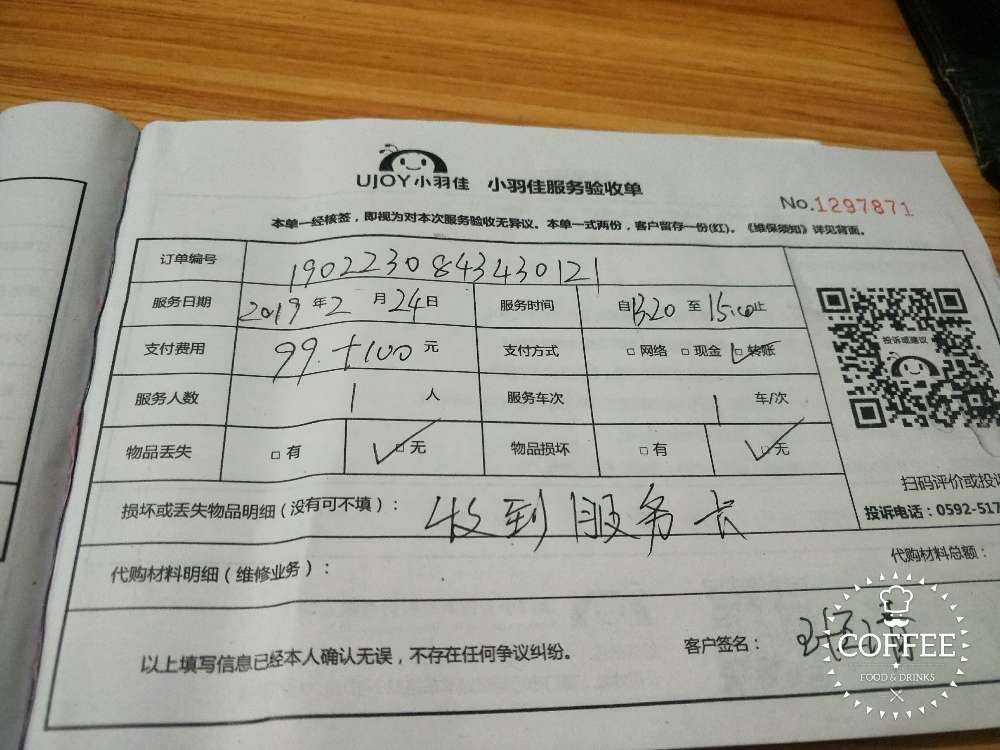 UJOY小羽佳 小羽佳服务验收单
No.1297871
本单一经核签，即视为对本次服务验收无异议。本单一式两份，客户留存一份(红)。《维保须知》详见背面。
订单编号 190223084343430121
服务日期 2019年2月24日 服务时间 自13:20至15:00止
支付费用 99.+100元 支付方式 □网络 □现金 □转账
投诉或建议
服务人数 1人 服务车次 1车/次
物品丢失 □有 □无 物品损坏 □有 □无
扫码评价或投诉
损坏或丢失物品明细(没有可不填)： 收到服务卡
投诉电话：0592-517
代购材料明细(维修业务)： 代购材料总额：
以上填写信息已经本人确认无误，不存在任何争议纠纷。 客户签名：
COFFEE
FOOD & DRINKS